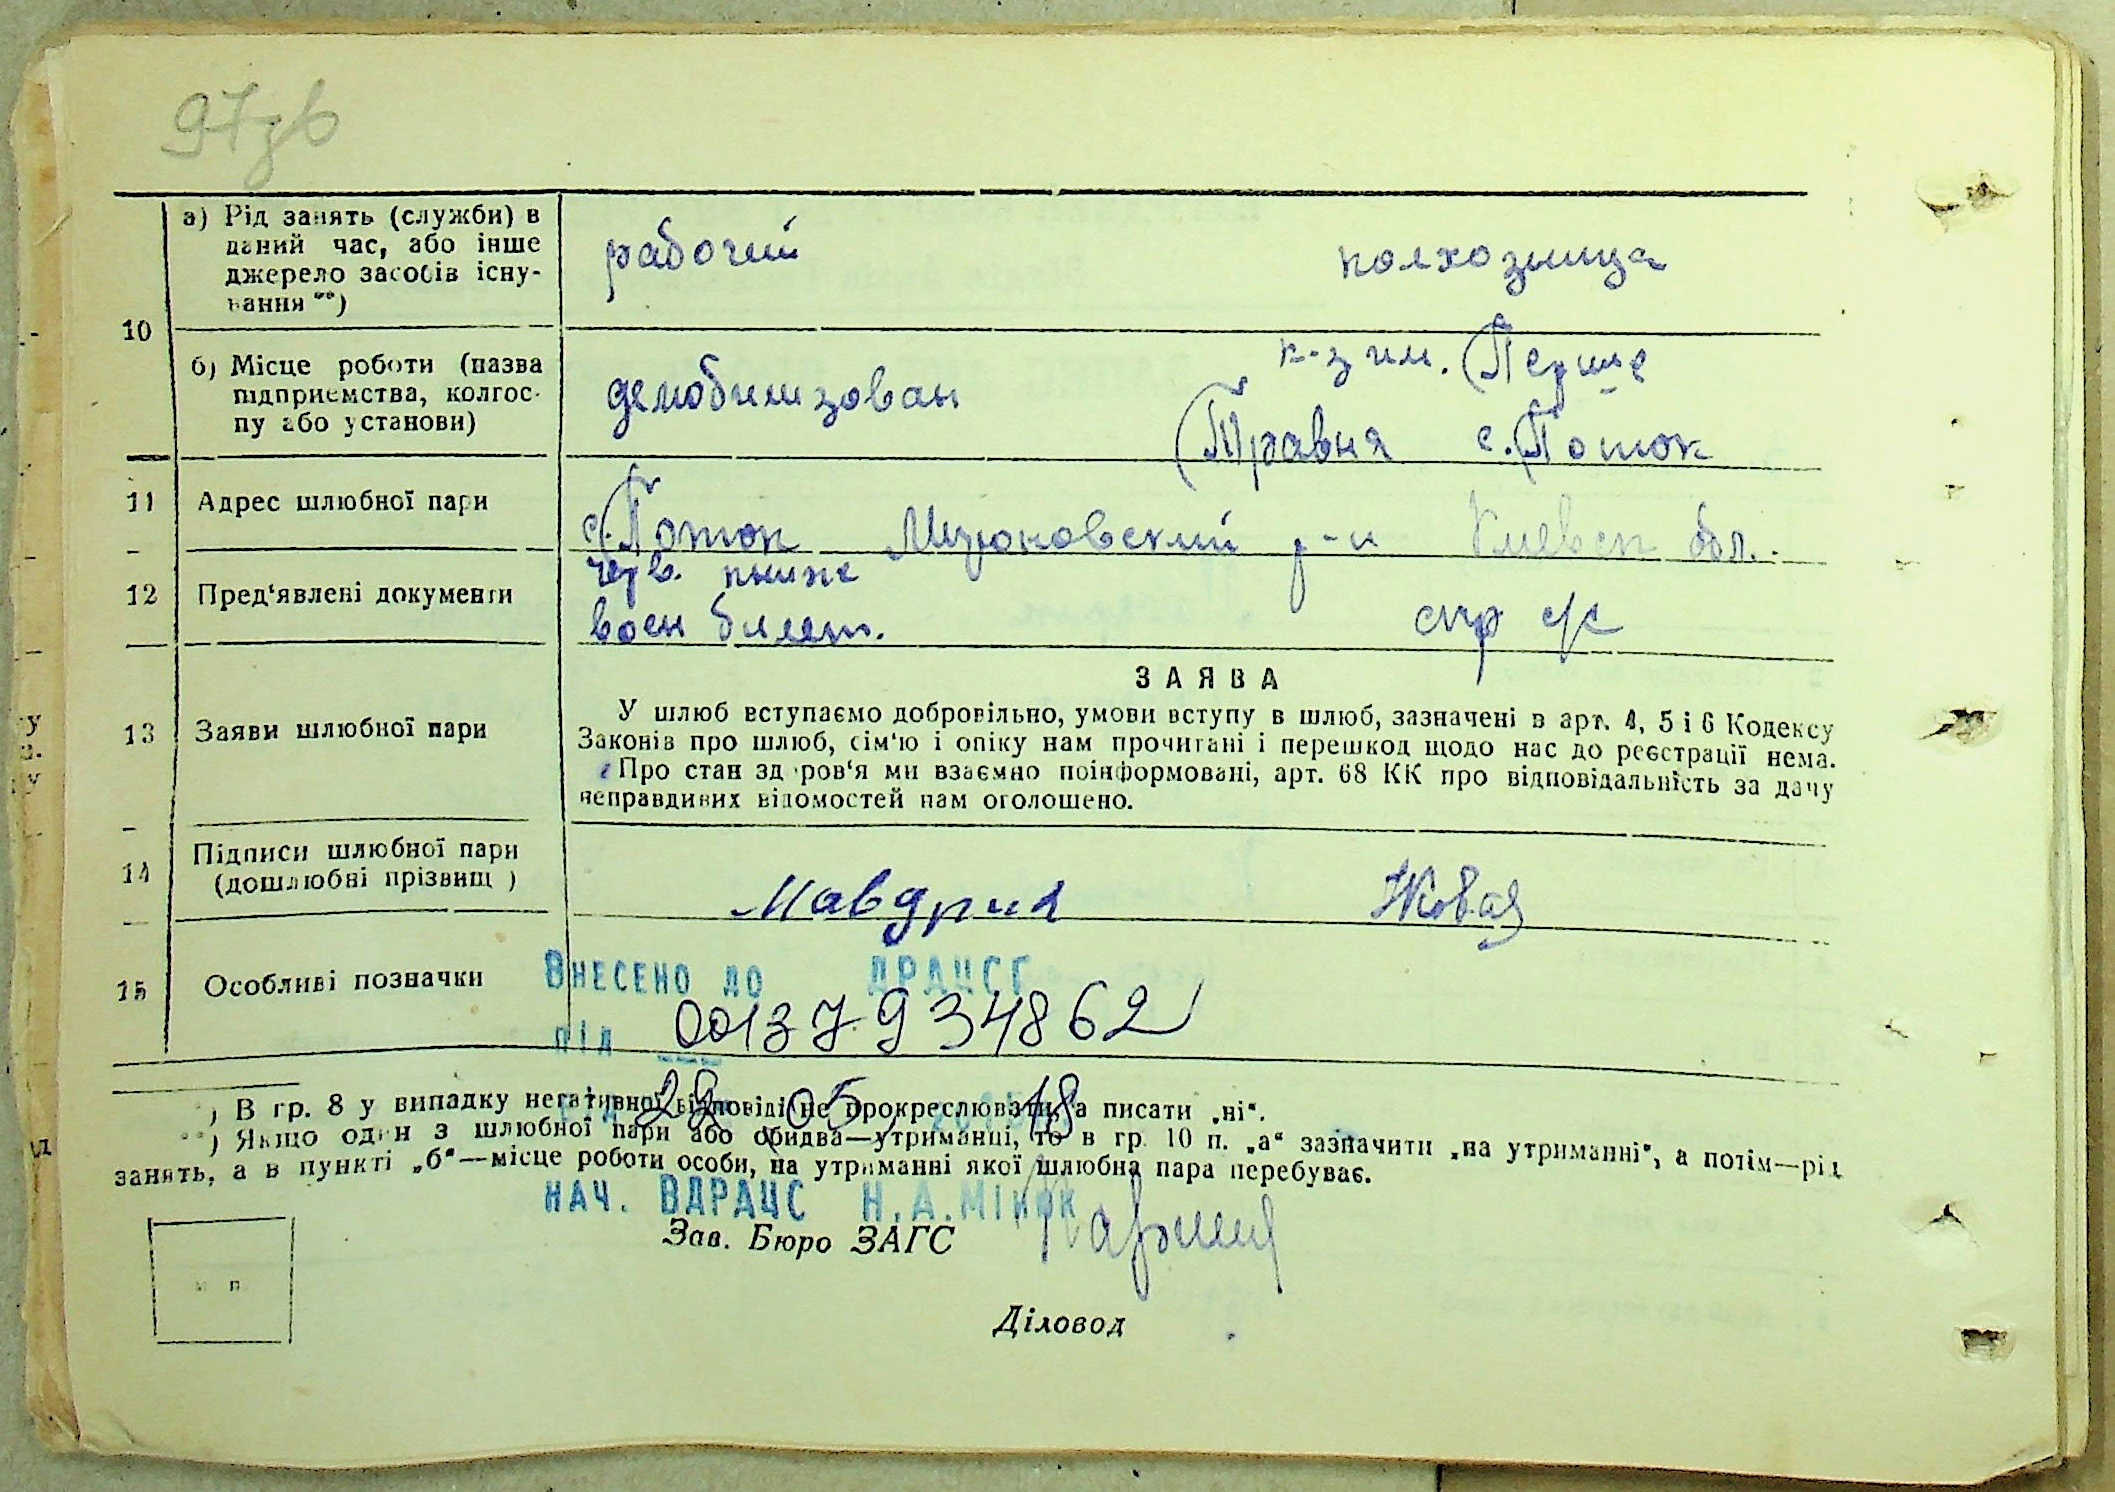 97зв
10
а) Рід занять (служби) в
даний час, або інше
джерело засобів існу-
вання **)
рабочий
колхозница
б) Місце роботи (назва
підприємства, колгос-
пу або установи)
демобилизован
к-з им. Перше
Травня с. Поток
11
Адрес шлюбної пари
с. Поток Мироновский р-н Киевск обл.
12
Пред'явлені документи
черв. книжк
воен билет.
спр с/с
13
Заяви шлюбної пари
ЗАЯВА
У шлюб вступаємо добровільно, умови вступу в шлюб, зазначені в арт. 4, 5 і 6 Кодексу
Законів про шлюб, сім'ю і опіку нам прочитані і перешкод щодо нас до реєстрації нема.
Про стан здоров'я ми взаємно поінформовані, арт. 68 КК про відповідальність за дачу
неправдивих відомостей нам оголошено.
14
Підписи шлюбної пари
(дошлюбні прізвищ )
Мавдрик
15
Особливі позначки
ВНЕСЕНО ДО ДРАЦСГ
ПІД 00137934862
28 05 2018
) В гр. 8 у випадку негативної відповіді не прокреслювати, а писати „ні“.
**) Якщо один з шлюбної пари або обидва—утриманці, то в гр. 10 п. „а“ зазначити „на утриманні“, а потім—рід
занять, а в пункті „б“—місце роботи особи, на утриманні якої шлюбна пара перебуває.
НАЧ. ВДРАЦС Н.А.МІНОК
Зав. Бюро ЗАГС
м п
Діловод